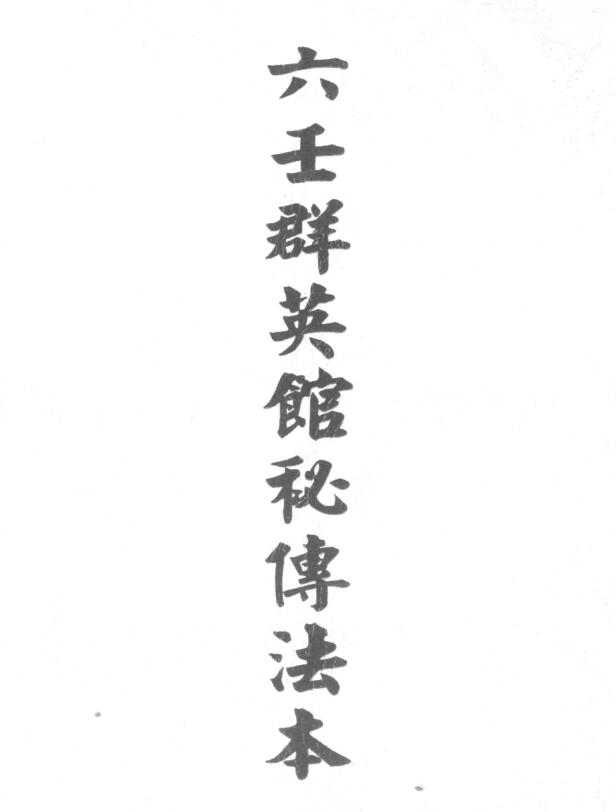 六壬群英館秘傳法本